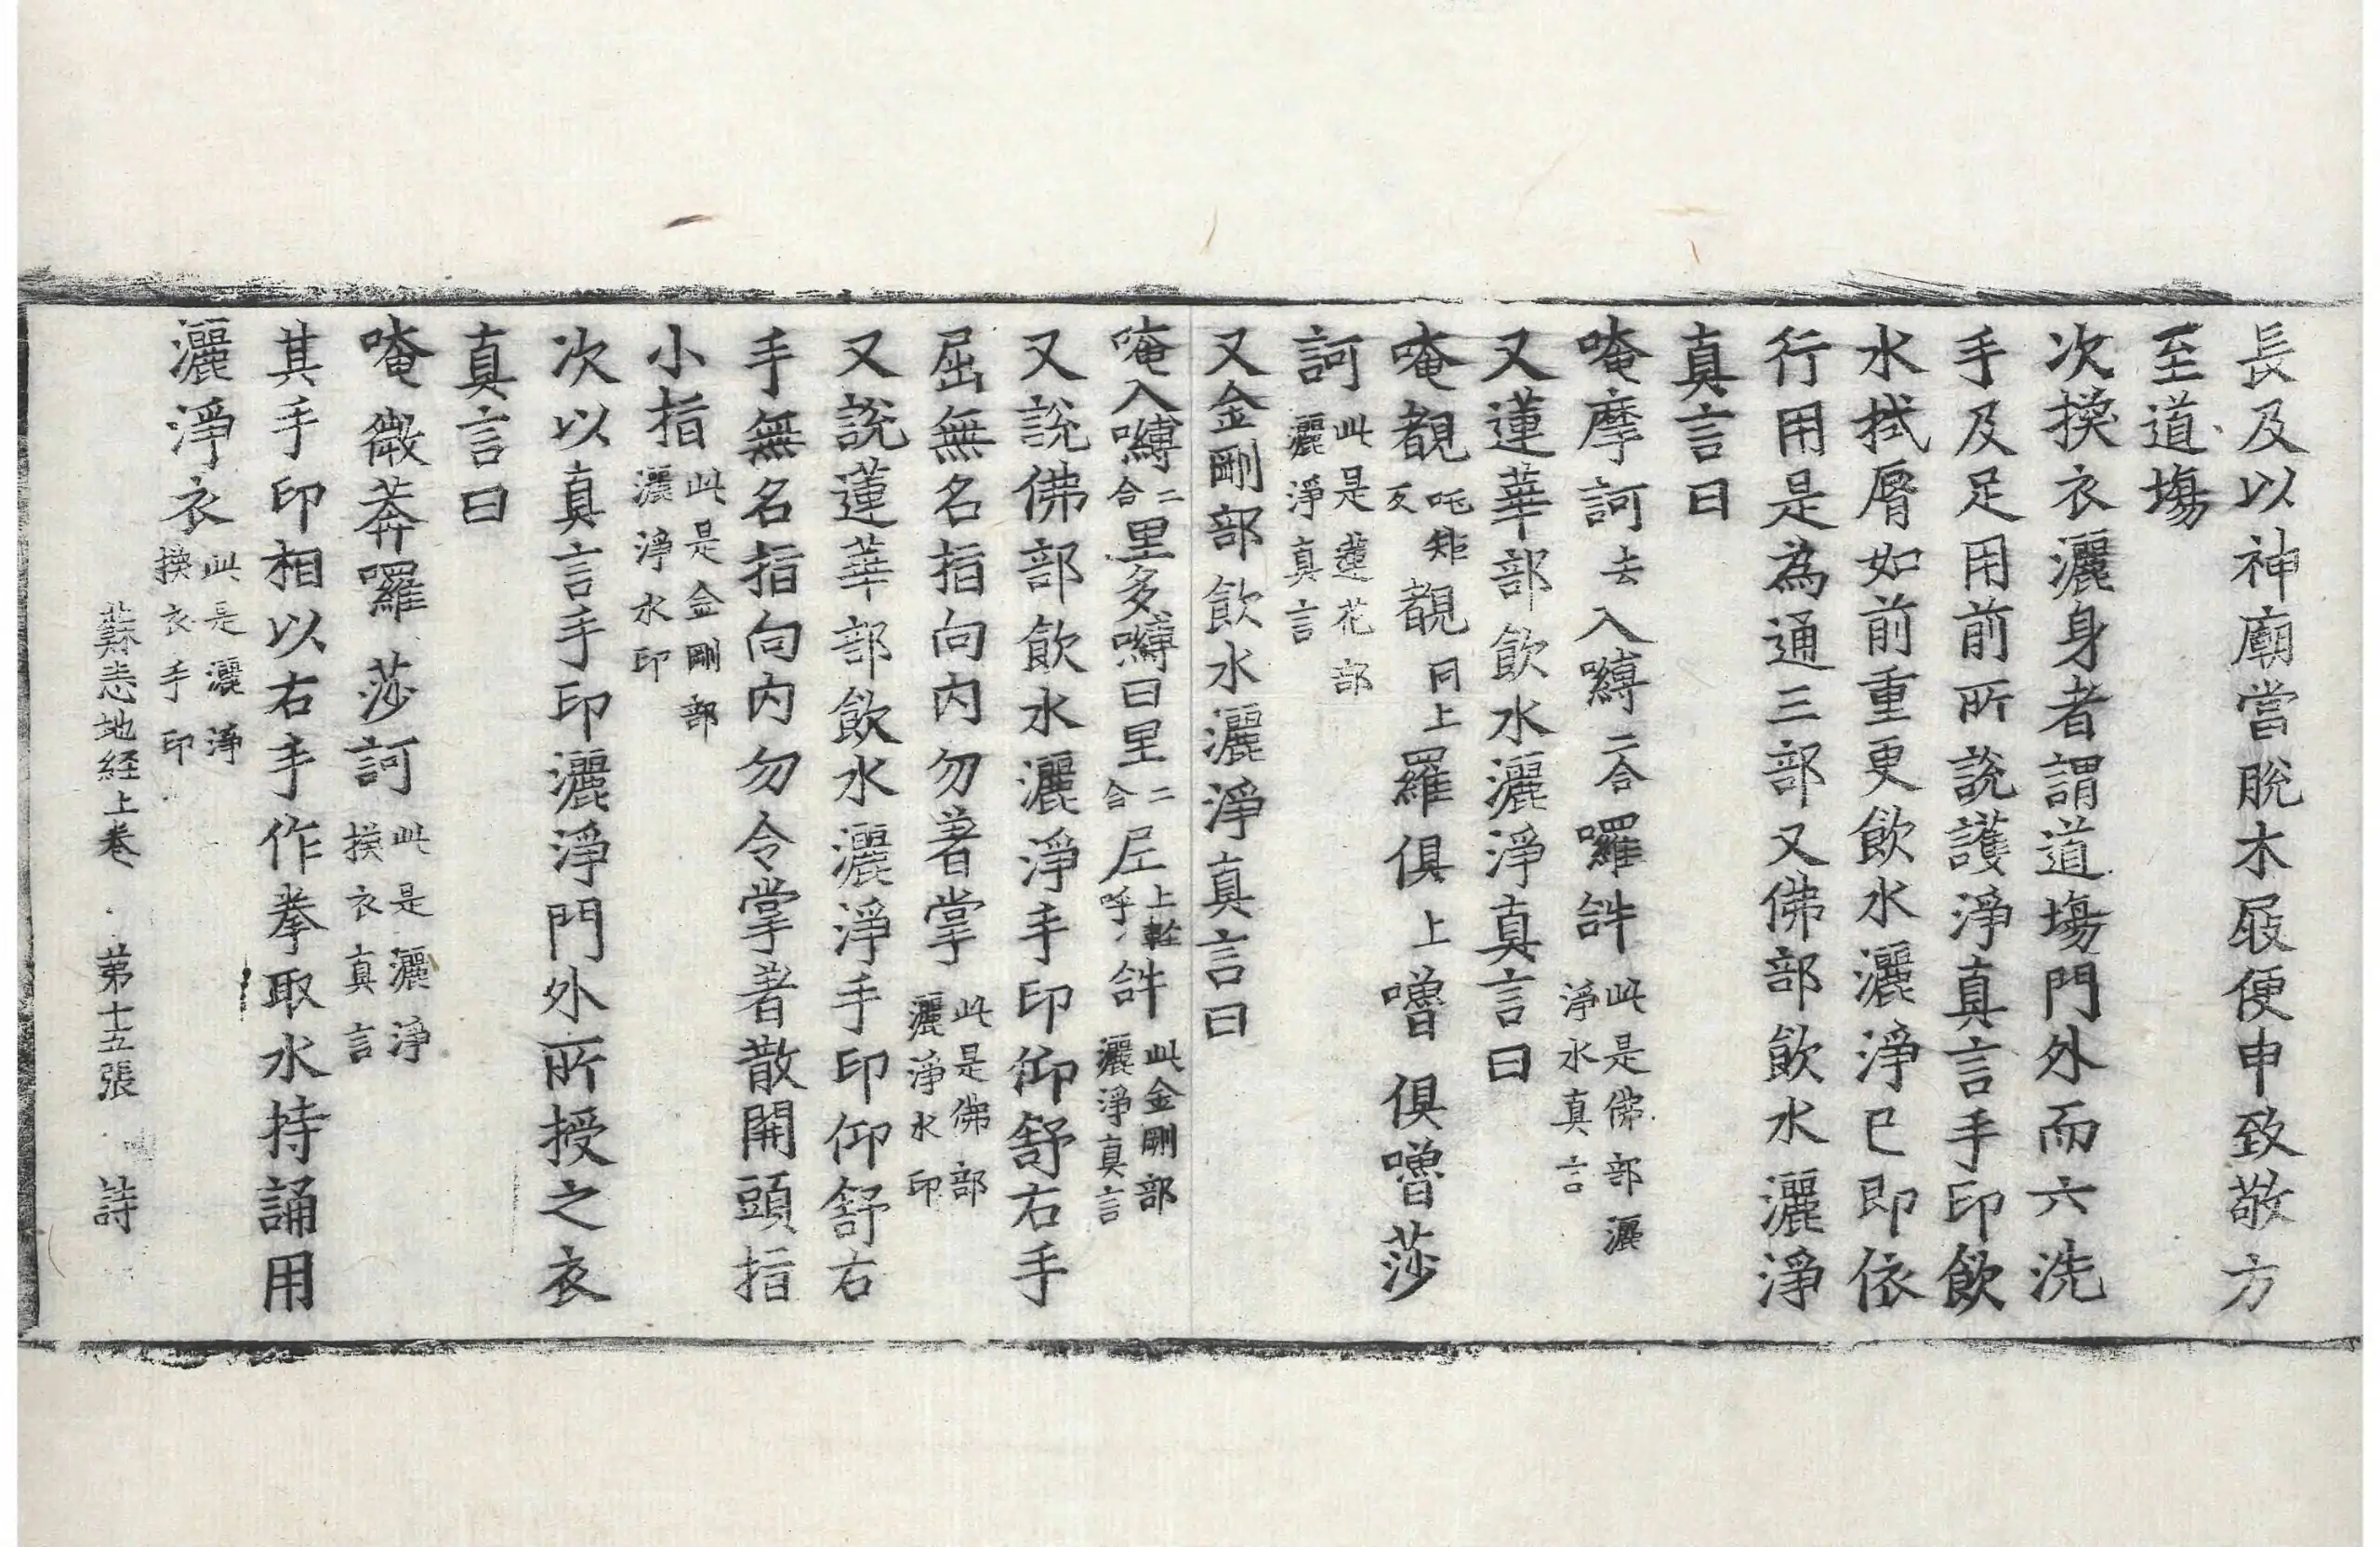 長及以神廟當脫木屐便申致敬方
至道塲
次換衣灑身者謂道塲門外而六洗
手及足用前所說護淨真言手印飲
水拭脣如前重更飲水灑淨已即依
行用是為通三部又佛部飲水灑淨
真言曰
唵摩訶去入嚩二合囉𤙖此是佛部灑淨水真言
又蓮華部飲水灑淨真言曰
唵覩吒矩反覩同上羅俱上嚕俱嚕莎
訶此是蓮花部灑淨真言
又金剛部飲水灑淨真言曰
唵入嚩二合里多嚩曰里二合𡰱上輕呼𤙖此金剛部灑淨真言
又說佛部飲水灑淨手印仰舒右手
屈無名指向內勿著掌此是佛部灑淨水印
又說蓮華部飲水灑淨手印仰舒右
手無名指向內勿令掌著散開頭指
小指此是金剛部灑淨水印
次以真言手印灑淨門外所授之衣
真言曰
唵微莽囉莎訶此是灑淨換衣真言
其手印相以右手作拳取水持誦用
灑淨衣此是灑淨換衣手印
蘇悉地経上卷 苐十五張 詩